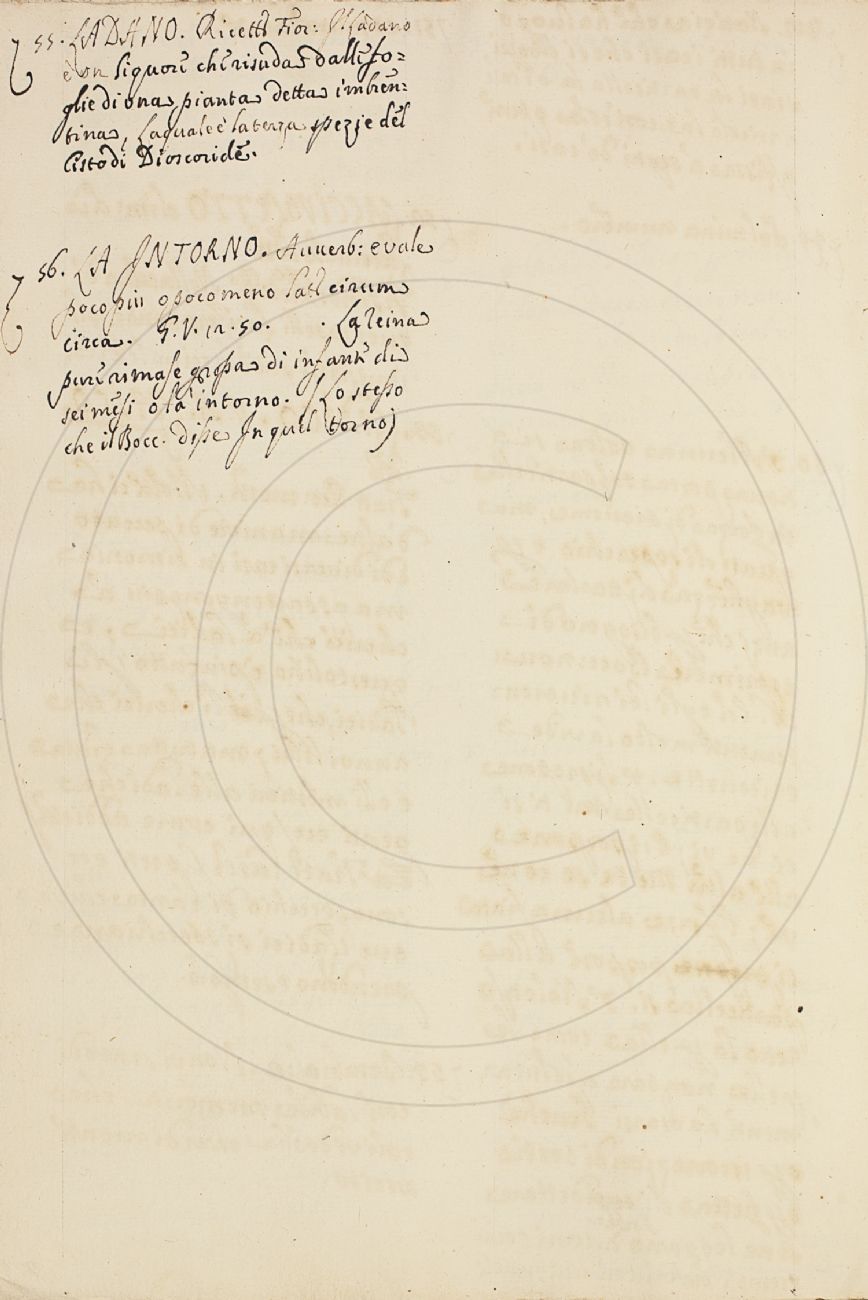 55. LADANO. Ricett: Fior: Il Ladano
è un liquore che risuda dalle fo=
glie di una pianta detta imbren=
tina, la quale è la terza spezie del
Cisto di Dioscoride.
56. LA INTORNO. Avverb: e vale
poco più o poco meno Lat: circum
circa. G. V. 12. 50. . La reina
pure rimase grossa di infante di
sei mesi o là intorno. (Lo stesso
che il Bocc. disse In quel torno)